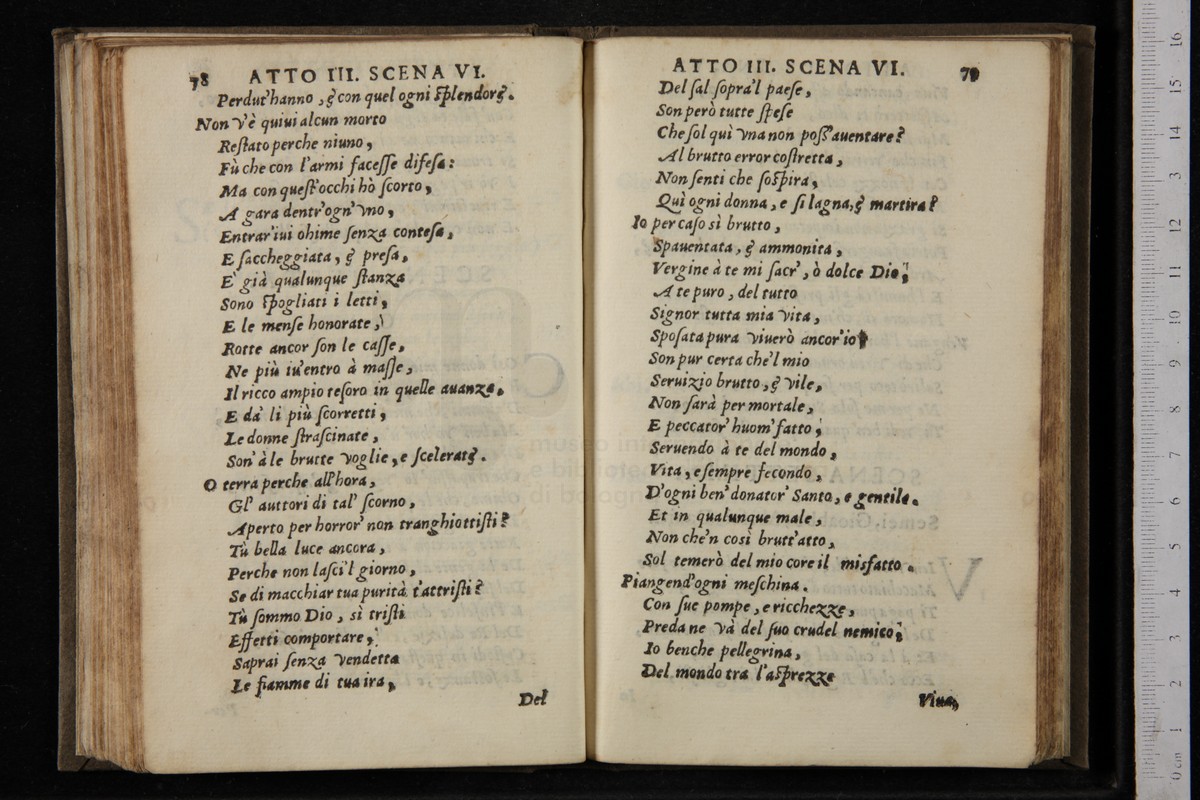 78 ATTO III. SCENA VI.
Perdut'hanno, & con quel ogni splendore.
Non v'è quiui alcun morto
Restato perche niuno,
Fù che con l'armi facesse difesa:
Ma con quest'occhi hò scorto,
A gara dentr'ogn'vno,
Entrar'iui ohime senza contesa,
E saccheggiata, & presa,
E' già qualunque stanza
Sono spogliati i letti,
E le mense honorate,
Rotte ancor son le casse,
Ne più iu'entro à masse,
Il ricco ampio tesoro in quelle auanza,
E da' li più scorretti,
Le donne strascinate,
Son' à le brutte voglie, e scelerate.
O terra perche all'hora,
Gl' auttori di tal' scorno,
Aperto per horror' non tranghiottisti?
Tù bella luce ancora,
Perche non lasci'l giorno,
Se di macchiar tua purità t'attristi?
Tù sommo Dio, sì tristi
Effetti comportare,
Saprai senza vendetta
Le fiamme di tua ira,
Del
ATTO III. SCENA VI. 79
Del sal sopra'l paese,
Son però tutte spese
Che sol quì vna non poss'auentare?
Al brutto error costretta,
Non senti che sospira,
Quì ogni donna, e si lagna, & martira?
Io per caso sì brutto,
Spauentata, & ammonita,
Vergine à te mi sacr', ò dolce Dio;
A te puro, del tutto
Signor tutta mia vita,
Sposata pura viuerò ancor'io
Son pur certa che'l mio
Seruizio brutto, & vile,
Non sarà per mortale,
E peccator' huom' fatto;
Seruendo à te del mondo,
Vita, e sempre fecondo,
D'ogni ben' donator' Santo, e gentile.
Et in qualunque male,
Non che'n così brutt'atto,
Sol temerò del mio core il misfatto.
Piangend'ogni meschina.
Con sue pompe, e ricchezze,
Preda ne và del suo crudel nemico;
Io benche pellegrina,
Del mondo tra l'asprezze
Viua,